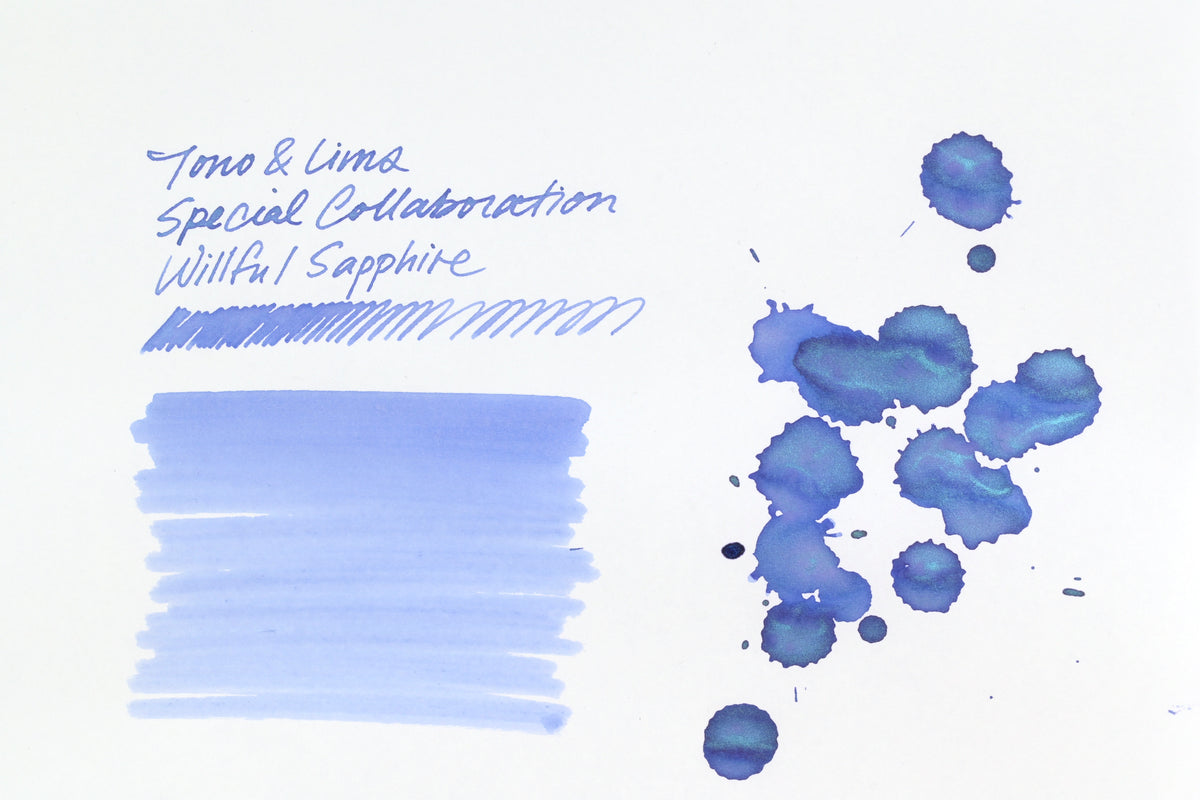 Tono & Lims
Special Collaboration
Willful Sapphire